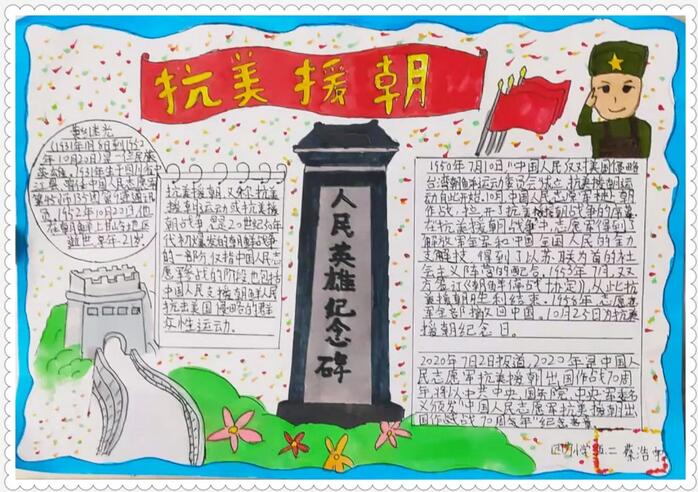 抗美援朝
黄继光
(1931年1月8日到1952
年10月20日)是一任民族
英雄。1931年生于四川省中
江县,曾任中国人民志愿军
第45师135团
员,1952年10月20日,他
在朝鲜半上甘岭地区
逝世,享年21岁。
抗美援朝,又称抗美
援朝运动或抗美援
朝战争,是20世纪50年
代初爆发的朝鲜战争
的一部分,仅指中国人民志
愿军参战的阶段,也包括
中国人民支援朝鲜人民
抗击美国侵略的群
众性运动。
人民英雄纪念碑
1950年7月10日,"中国人民反对美国侵略
台湾朝鲜运动委员会"成立,抗美援朝运
动自此开始。10月,中国人民志愿军赴朝
作战,拉开了抗美援朝战争的序幕。
在抗美援朝战争中,志愿军得到了
解放军全军和中国全国人民的全力
支持,得到了以苏联为首的社
会主义阵营的配合。1953年7月,双
方签订《朝鲜停战协定》,从此抗
美援朝胜利结束。1958年,志愿
军全部撤回中国。10月25日为抗美
援朝纪念日。
2020年7月2日报道,2020年是中国人
民志愿军抗美援朝出国作战70周
年,将以中共中央、国务院、中央军委名
义颁发"中国人民志愿军抗美援朝出
国作战70周年"纪念章
四小学五.二 蔡浩宇